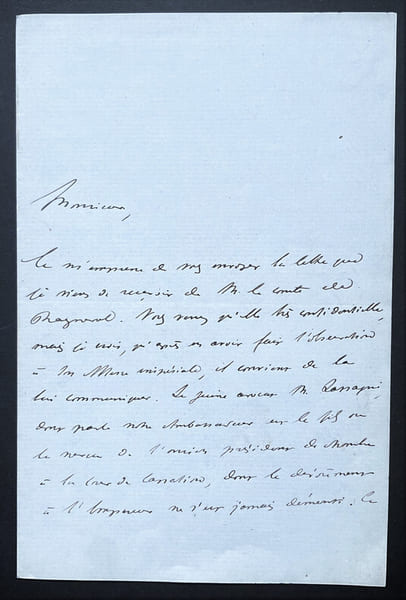 Monsieur,
Je m'empresse de vous envoyer la lettre que
je viens de recevoir de M. le comte de
Rayneval. Vous verrez qu'elle très confidentielle,
mais je crois, qu'après en avoir fait l'observation
à Son Altesse impériale, il convient de la
lui communiquer. Le jeune avocat M.
dont parle notre Ambassadeur est le fils ou
le neveu de l'ancien président de Chambre
à la Cour de Cassation, dont le dévouement
à l'Empereur ne s'est jamais démenti. Ce